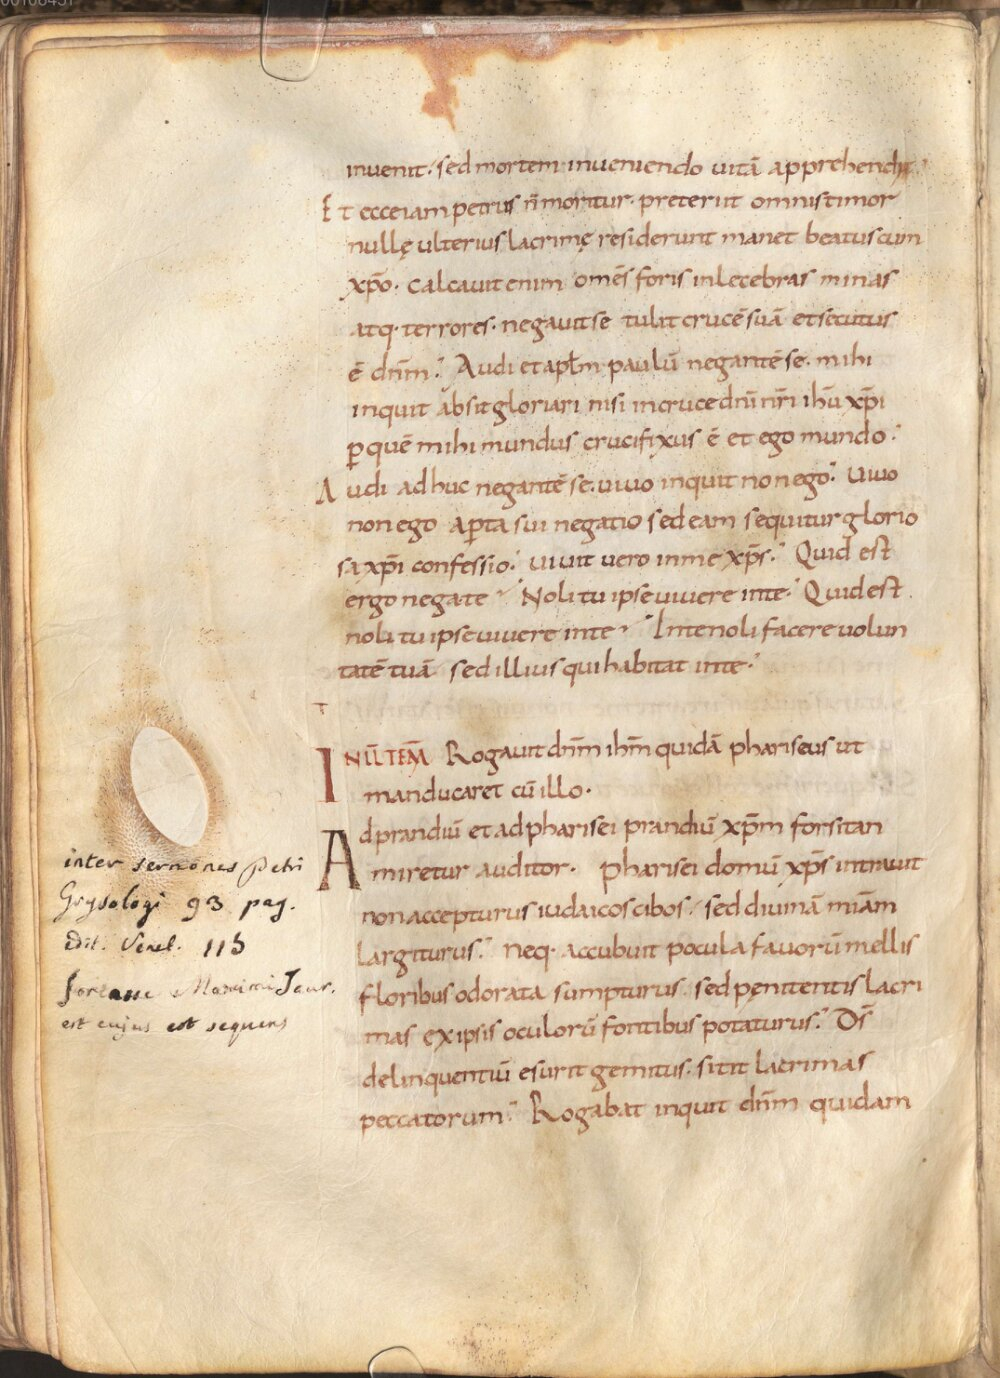 inuenit. sed mortem inueniendo uitā apprehendit.
Et ecce iam petrus n̄ moritur. preteriit omnis timor
nullę ulterius lacrimę residerunt manet beatus cum
xp̄o. calcauit enim om̄s foris inlecebras minas
atq. terrores. negauit se tulit crucē suā et secutus
ē dn̄m. Audi et apłm paulū negantē se. mihi
inquit absit gloriari nisi in cruce dn̄i nr̄i ihū xp̄i
ꝑ quē mihi mundus crucifixus ē et ego mundo.
Audi adhuc negantē se. uiuo inquit non ego. Uiuo
non ego aꝑta sui negatio sed eam sequitur glorio
sa xp̄i confessio. uiuit uero in me xp̄s. Quid est
ergo negate Noli tu ipse uiuere in te. Quid est
noli tu ipse uiuere in te In te noli facere uolun
tatē tuā sed illius qui habitat in te.
IN IL̄ TEM̄ Rogauit dn̄m ihm̄ quidā phariseus ut
manducaret cū illo.
Ad prandiū et ad pharisei prandiū xp̄m forsitan
miretur auditor. Pharisei domū xp̄s intrauit
non accepturus iudaicos cibos. sed diuinā miām
largiturus. neq. accubuit pocula fauorū mellis
floribus odorata sumpturus. sed pęnitentis lacri
mas ex ipsis oculorū fontibus potaturus. Ds̄
delinquentiū esurit gemitus. sitit lacrimas
peccatorum. Rogabat inquit dn̄m quidam
inter sermones Petri
Grysologi 93 pag.
Edit. Venet. 115
fortasse Maximi Taur.
est cujus est sequens